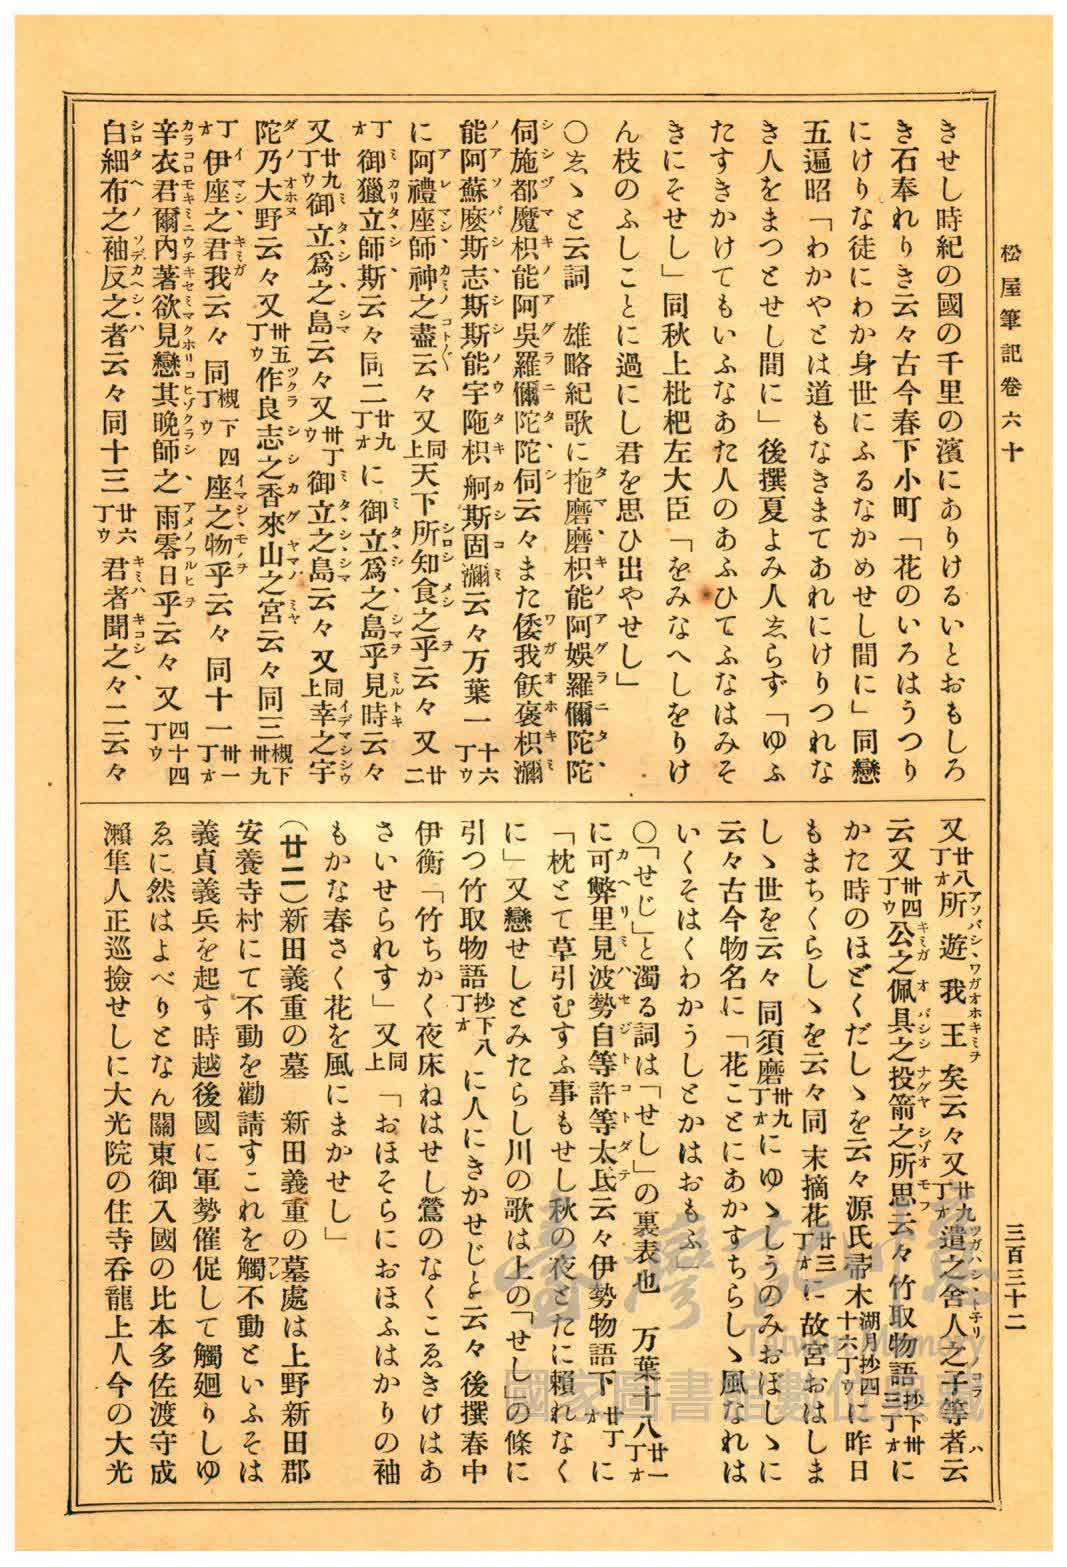 松屋筆記卷六十
三百三十二
きせし時紀の國の千里の濱にありけるいとおもしろ
き石奉れりき云々古今春下小町「花のいろはうつり
にけりな徒にわか身世にふるなかめせし間に」同戀
五遍昭「わかやとは道もなきまてあれにけりつれな
き人をまつとせし間に」後撰夏よみ人志らず「ゆふ
たすきかけてもいふなあた人のあふひてふなはみそ
きにそせし」同秋上枇杷左大臣「をみなへしをりけ
ん枝のふしことに過にし君を思ひ出やせし」
〇志ゝと云詞　雄略紀歌に拖磨磨枳能阿娛羅儞陀陀
伺施都魔枳能阿吳羅儞陀陀伺云々また倭我飫褒枳瀰
能阿蘇麼斯志斯斯能宇陁枳舸斯固瀰云々万葉一十六丁ウ
に阿禮座師神之盡云々又同上天下所知食之乎云々又二廿
丁オ御獵立師斯云々同二廿九丁オに御立爲之島乎見時云々
又廿九丁ウ御立爲之島云々又卅丁ウ御立之島云々又同上幸之宇
陀乃大野云々又卅五丁ウ作良志之香來山之宮云々同三槻下卅九
丁オ伊座之君我云々同槻下四丁ウ座之物乎云々同十一卅一丁オ
辛衣君爾內著欲見戀其晚師之雨零日乎云々又四十四丁ウ
白細布之袖反之者云々同十三廿六丁ウ君者聞之々二云々
又廿八丁オ所遊我王矣云々又廿九丁オ遣之舍人之子等者云
云又卅四丁ウ公之佩具之投箭之所思云々竹取物語抄下卅三丁オに
かた時のほどくだしゝを云々源氏帚木湖月抄四十六丁ウに昨日
もまちくらしゝを云々同末摘花廿三丁オに故宮おはしま
しゝ世を云々同須磨卅九丁オにゆゝしうのみおぼしゝに
云々古今物名に「花ことにあかすちらしゝ風なれは
いくそはくわかうしとかはおもふ」
〇「せじ」と濁る詞は「せし」の裏表也　万葉十八廿一丁オ
に可弊里見波勢自等許等太氐云々伊勢物語下卅丁オに
「枕とて草引むすふ事もせし秋の夜とたに賴れなく
に」又戀せしとみたらし川の歌は上の「せし」の條に
引つ竹取物語抄下八丁オに人にきかせじと云々後撰春中
伊衡「竹ちかく夜床ねはせし鶯のなくこゑきけはあ
さいせられす」又同上「おほそらにおほふはかりの袖
もかな春さく花を風にまかせし」
（廿二）新田義重の墓　新田義重の墓處は上野新田郡
安養寺村にて不動を勸請すこれを觸不動といふそは
義貞義兵を起す時越後國に軍勢催促して觸廻りしゆ
ゑに然はよべりとなん關東御入國の比本多佐渡守成
瀨隼人正巡撿せしに大光院の住寺呑龍上人今の大光
臺灣記憶
Taiwan Memory
國家圖書館數位典藏